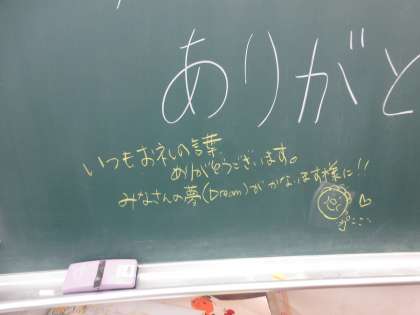 ありがと
いつもお礼の言葉
ありがとうございます。
みなさんの夢(Dream)がかないます様に!!